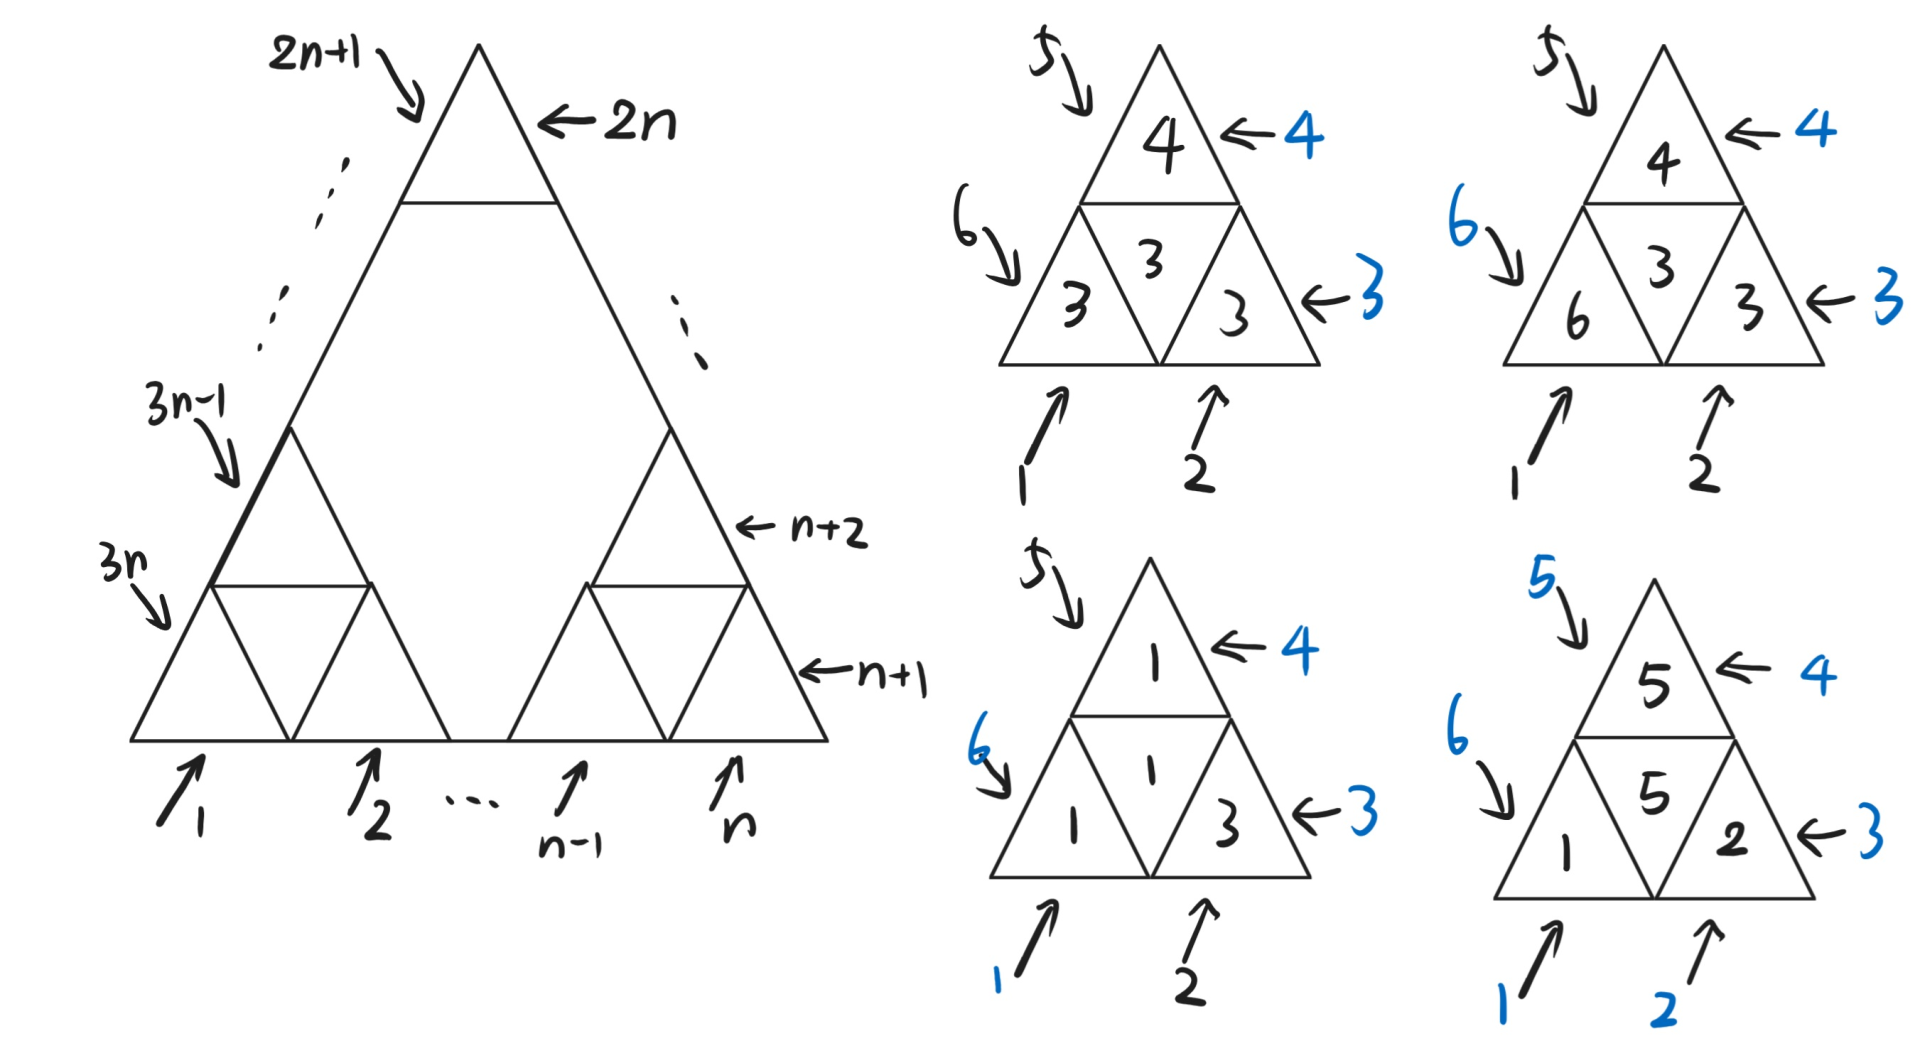 2n+1
2n
3n-1
3n
n+2
n+1
1
2
...
n-1
n
5
4
4
6
3
3
3
3
1
2
5
4
4
6
3
6
3
3
1
2
5
1
4
6
1
1
3
3
1
2
5
5
4
6
5
1
2
3
1
2